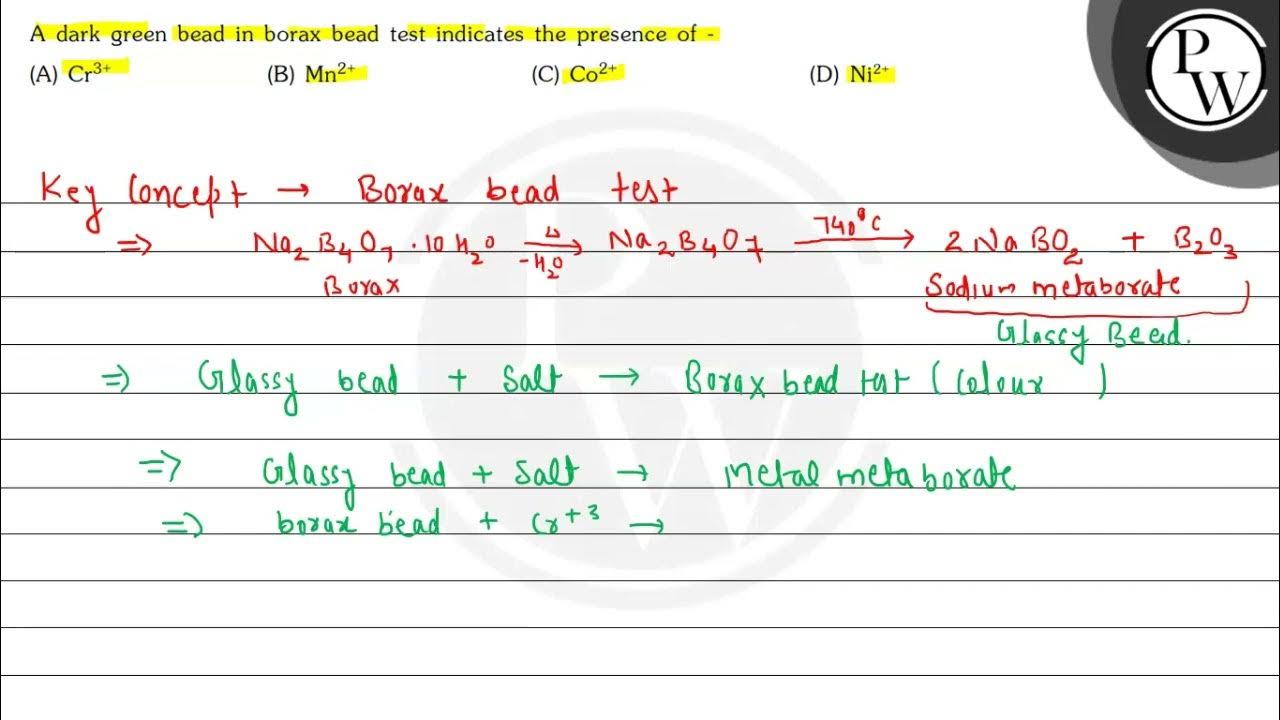 A dark green bead in borax bead test indicates the presence of -
(A) Cr³⁺ (B) Mn²⁺ (C) Co²⁺ (D) Ni²⁺
P
W
Key Concept → Borax bead test
⇒ Na₂B₄O₇·10H₂O —Δ, -H₂O→ Na₂B₄O₇ —740°C→ 2NaBO₂ + B₂O₃
Borax Sodium metaborate
Glassy Bead.
⇒ Glassy bead + Salt → Borax bead test (Colour )
⇒ Glassy bead + Salt → Metal metaborate
⇒ borax bead + Cr⁺³ →